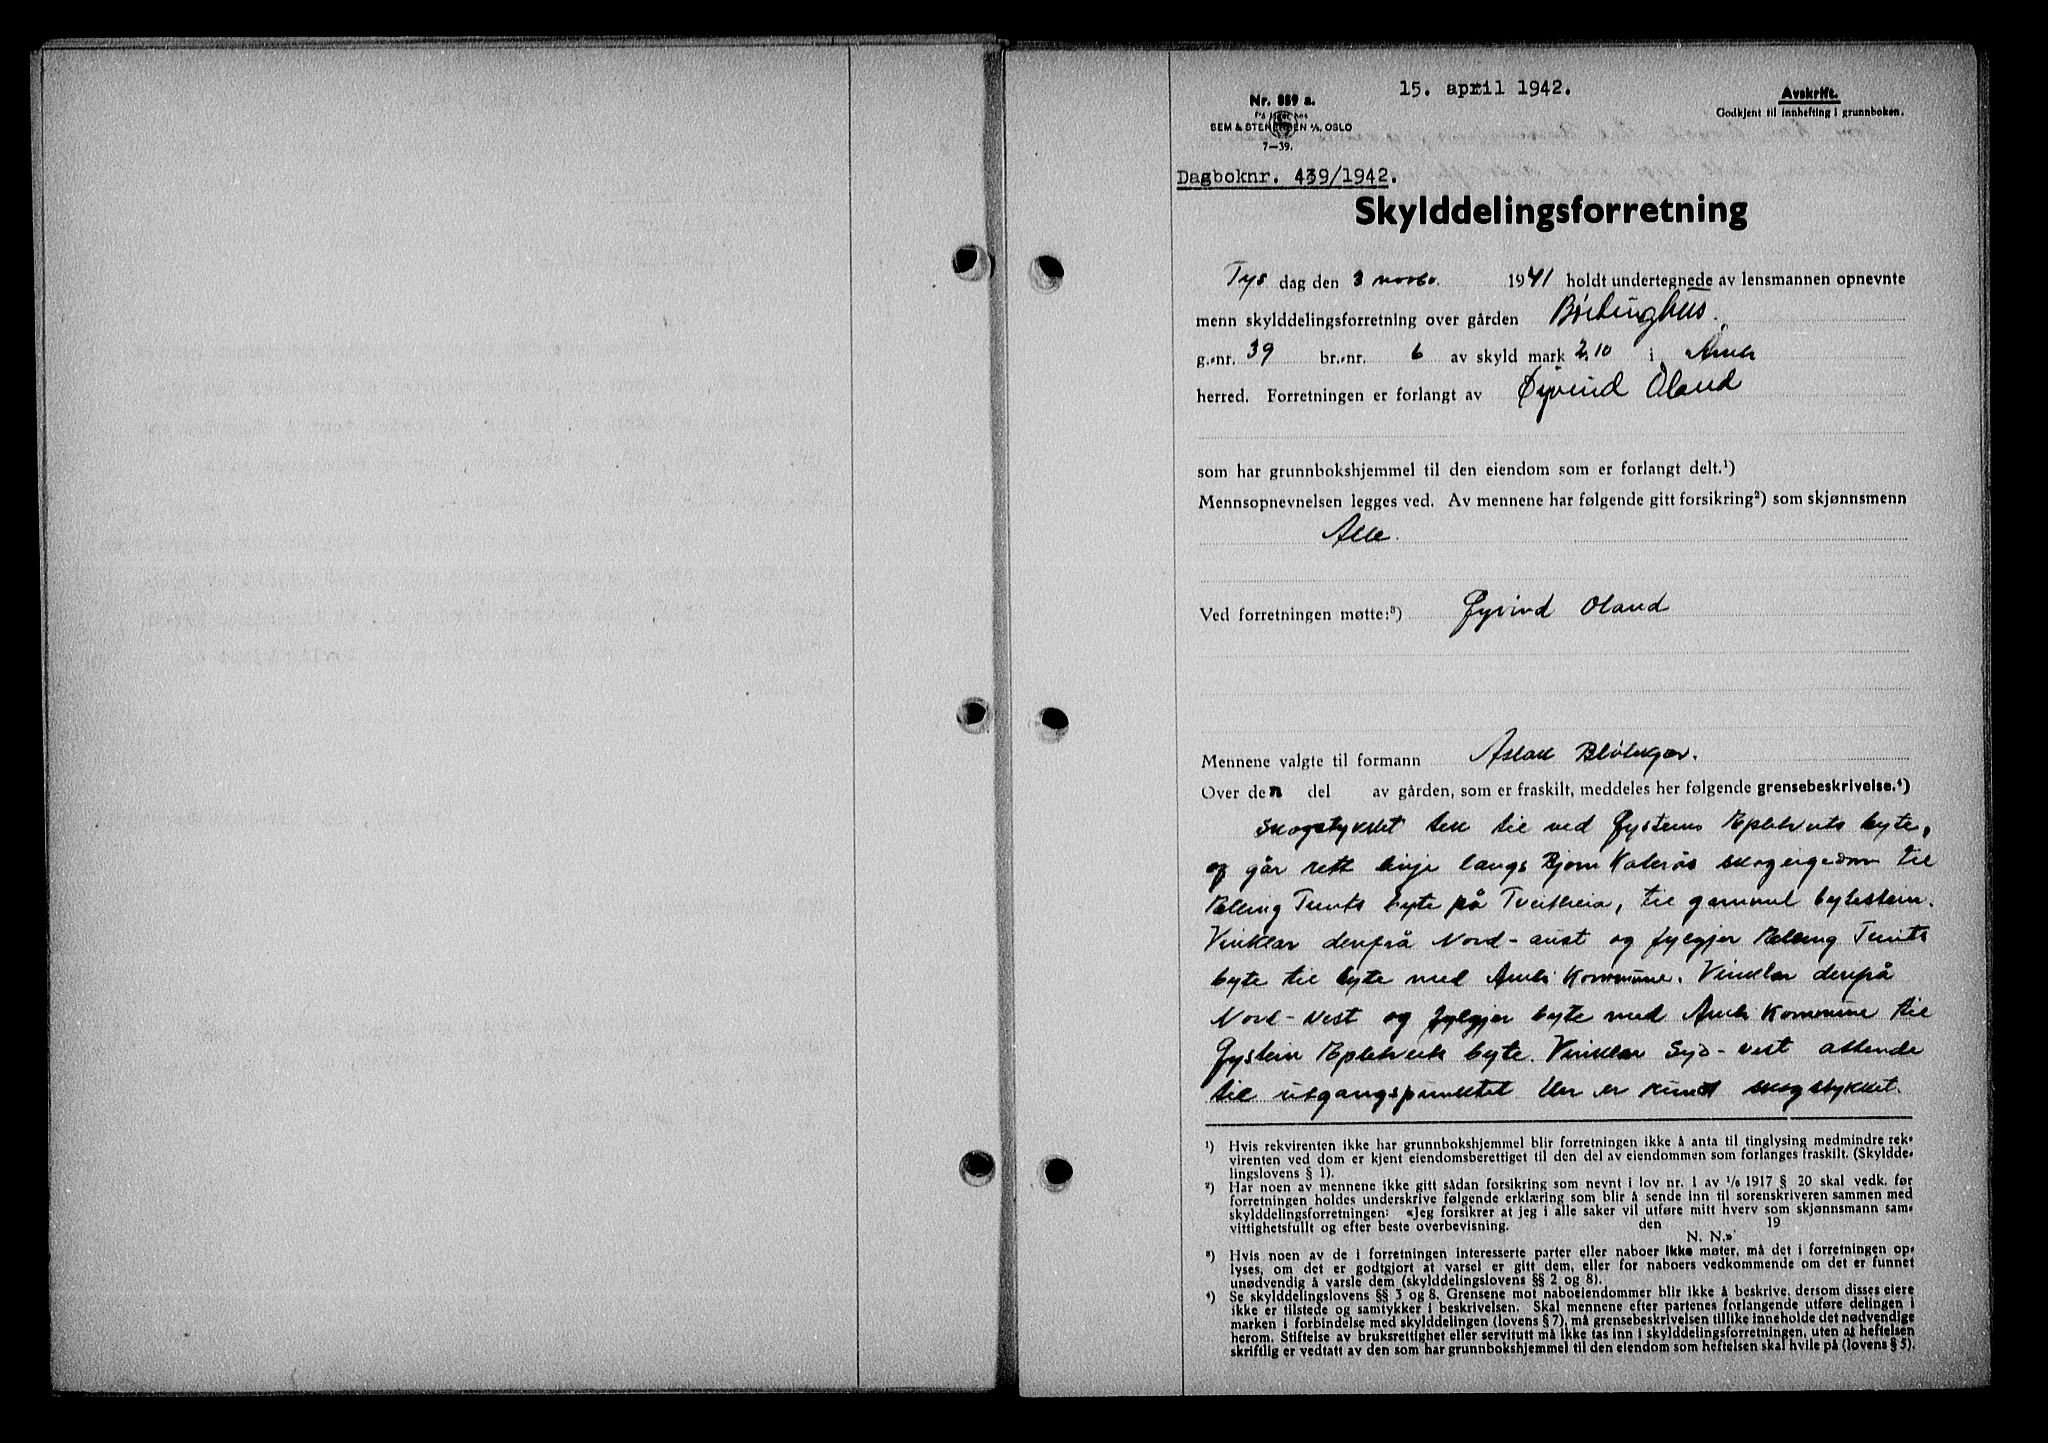 15. april 1942.
Avskrift.
Godkjent til innhefting i grunnboken.
Nr. 889 a.
På lager hos
SEM & STENERSEN A/S, OSLO
7—39.
Dagboknr. 439/1942.
Skylddelingsforretning
Tys dag den 3 novbr. 1941 holdt undertegnede av lensmannen opnevnte
menn skylddelingsforretning over gården
g.-nr. 39 br.-nr. 6 av skyld mark 2,10 i Åmli
herred. Forretningen er forlangt av Øyvind Oland
som har grunnbokshjemmel til den eiendom som er forlangt delt.¹)
Mennsopnevnelsen legges ved. Av mennene har følgende gitt forsikring²) som skjønnsmenn
Alle.
Ved forretningen møtte:³) Øyvind Oland
Mennene valgte til formann Aslak
Over den del av gården, som er fraskilt, meddeles her følgende grensebeskrivelse.⁴)
Skogstykket tek til ved Øysteins Epletveits byte,
og går rett linje langs Bjorn Katerås skogeigedom til
Elling Tveits byte på Tveitheia, til gammal bytestein.
Vinklar derifrå Nord-aust og fylgjer Elling Tveits
byte til byte med Åmli Kommune. Vinklar derifrå
Nord-vest og fylgjer byte med Åmli Kommune til
Øystein Epletveits byte. Vinklar Syd-vest attende
til utgangspunktet. Her er kund skogstykket.
¹) Hvis rekvirenten ikke har grunnbokshjemmel blir forretningen ikke å anta til tinglysing medmindre rek-
virenten ved dom er kjent eiendomsberettiget til den del av eiendommen som forlanges fraskilt. (Skyldde-
lingslovens § 1).
²) Har noen av mennene ikke gitt sådan forsikring som nevnt i lov nr. 1 av 1/6 1917 § 20 skal vedk. før
forretningen holdes underskrive følgende erklæring som blir å sende inn til sorenskriveren sammen med
skylddelingsforretningen: «Jeg forsikrer at jeg i alle saker vil utføre mitt hverv som skjønnsmann sam-
vittighetsfullt og efter beste overbevisning. den 19
N. N.»
³) Hvis noen av de i forretningen interesserte parter eller naboer ikke møter, må det i forretningen op-
lyses, om det er godtgjort at varsel er gitt dem, eller for naboers vedkommende om det er funnet
unødvendig å varsle dem (skylddelingslovens §§ 2 og 8).
⁴) Se skylddelingslovens §§ 3 og 8. Grensene mot naboeiendommer blir ikke å beskrive, dersom disses eiere
ikke er tilstede og samtykker i beskrivelsen. Skal mennene efter partenes forlangende utføre delingen i
marken i forbindelse med skylddelingen (lovens § 7), må grensebeskrivelsen tillike inneholde det nødvendige
herom. Stiftelse av bruksrettighet eller servitutt må ikke tas inn i skylddelingsforretningen, uten at heftelsen
skriftlig er vedtatt av den som har grunnbokshjemmel til den eiendom som heftelsen skal hvile på (lovens § 5).